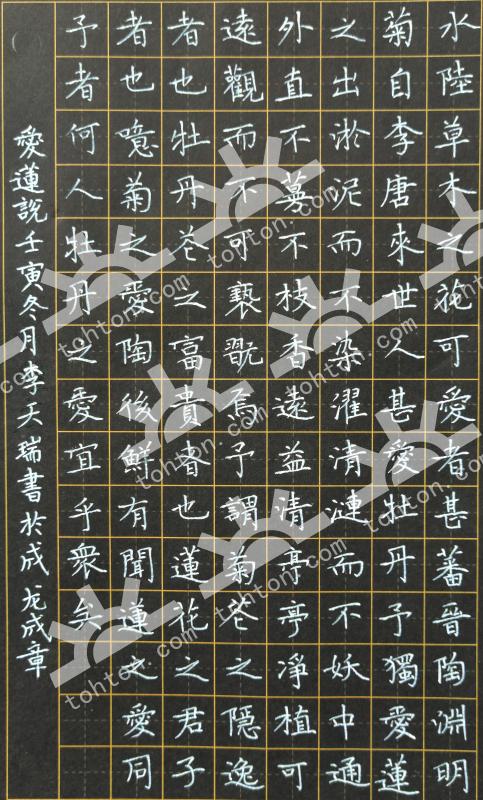 水陸草木之花可愛者甚蕃晉陶淵明
菊自李唐來世人甚愛牡丹予獨愛蓮
之出淤泥而不染濯清漣而不妖中通
外直不蔓不枝香遠益清亭亭淨植可
遠觀而不可褻翫焉予謂菊花之隱逸
者也牡丹花之富貴者也蓮花之君子
者也噫菊之愛陶後鮮有聞蓮之愛同
予者何人牡丹之愛宜乎衆矣
愛蓮說壬寅冬月李天瑞書於成龙成章
tohton.com
tohton.com
tohton.com
tohton.com
tohton.com
tohton.com
tohton.com
tohton.com